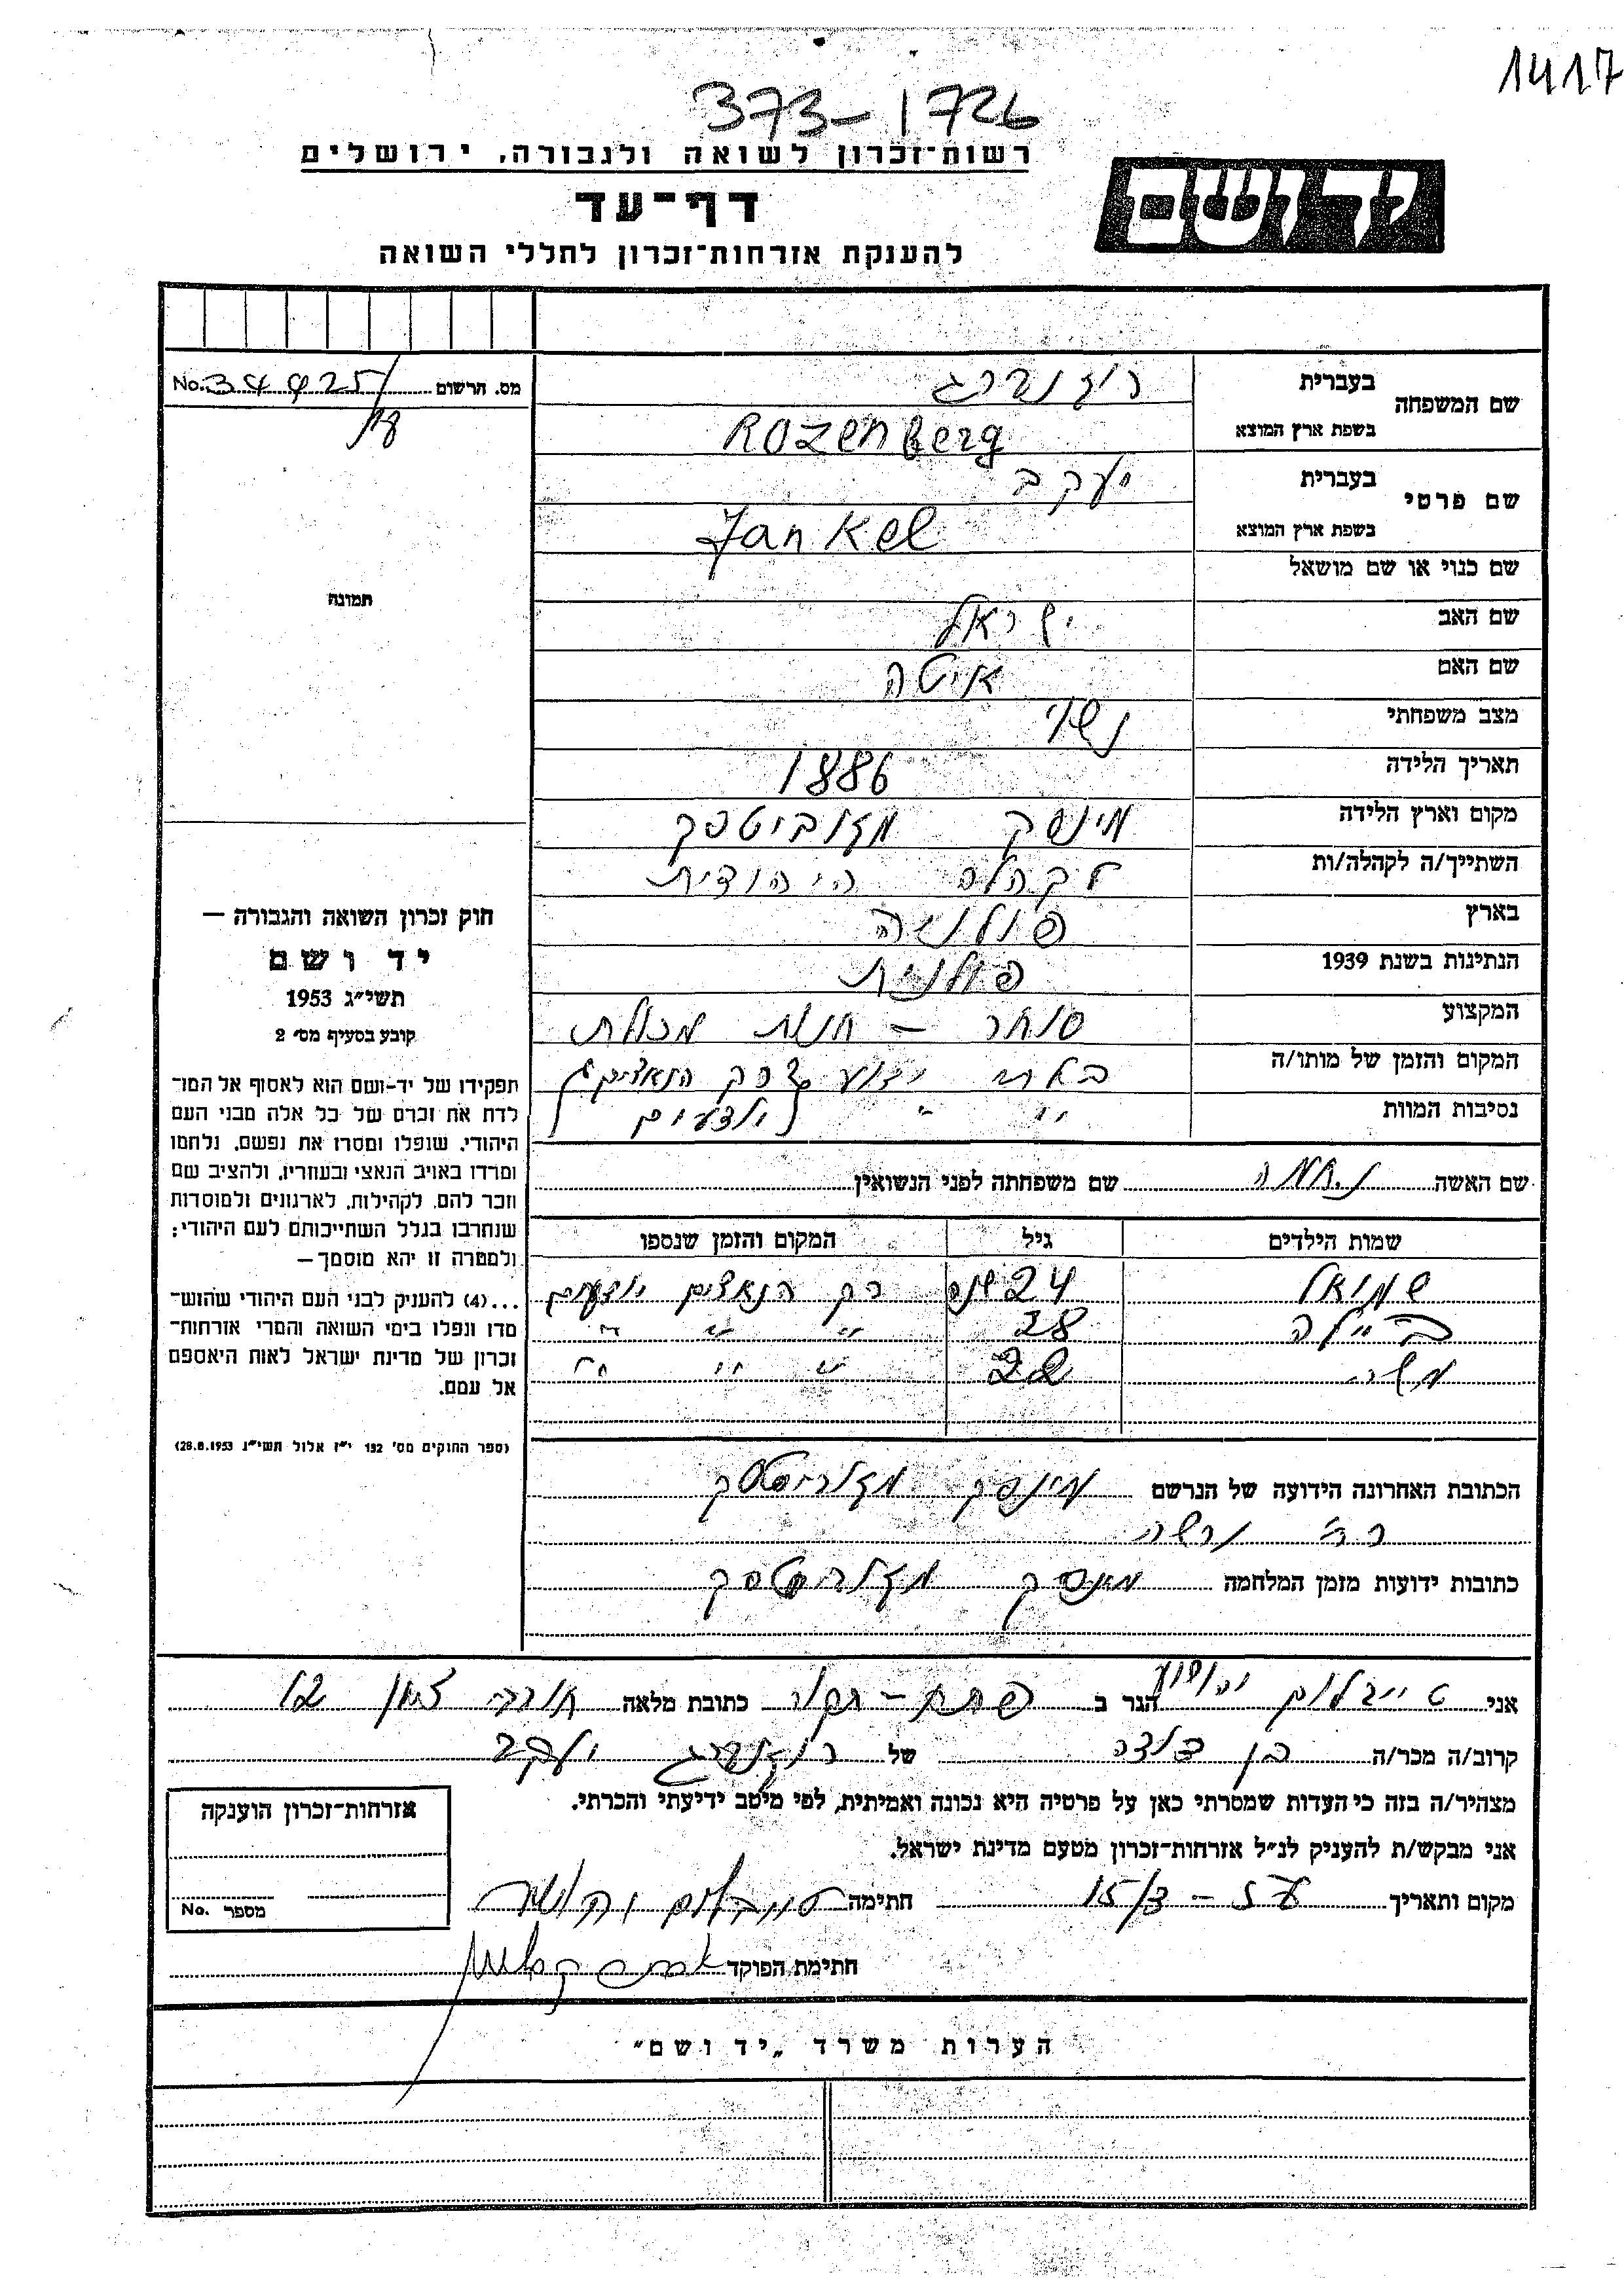 1417
373-1726
רשות-זכרון לשואה ולגבורה, ירושלים
יד ושם
דף-עד
להענקת אזרחות-זכרון לחללי השואה
מס. הרשום No. 34425/
18
תמונה
שם המשפחה בעברית רוזנברג
בשפת ארץ המוצא Rozenberg
שם פרטי בעברית יעקב
בשפת ארץ המוצא Jankel
שם כנוי או שם מושאל
שם האב ישראל
שם האם איטה
מצב משפחתי נשוי
תאריך הלידה 1886
מקום וארץ הלידה מינסק מזוביטסק
השתייך/ה לקהלה/ות לקהלה היהודית
בארץ פולניה
הנתינות בשנת 1939 פולנית
המקצוע סוחר - חנות מכולת
המקום והזמן של מותו/ה הנאצים
נסיבות המוות יודעים
שם האשה נחמה שם משפחתה לפני הנשואין
שמות הילדים גיל המקום והזמן שנספו
שמואל 24 שנה רק הנאצים יודעים
ביילה 28 " " "
משה 22 " " "
הכתובת האחרונה הידועה של הנרשם מינסק מזוביטסק
ורשה
כתובות ידועות מזמן המלחמה מינסק מזוביטסק
חוק זכרון השואה והגבורה —
יד ושם
תשי"ג 1953
קובע בסעיף מס' 2
תפקידו של יד-ושם הוא לאסוף אל המו-
לדת את זכרם של כל אלה מבני העם
היהודי, שנפלו ומסרו את נפשם, נלחמו
ומרדו באויב הנאצי ובעוזריו, ולהציב שם
וזכר להם, לקהילות, לארגונים ולמוסדות
שנחרבו בגלל השתייכותם לעם היהודי;
ולמטרה זו יהא מוסמך—
...(4) להענקת לבני העם היהודי שהוש-
מדו ונפלו בימי השואה והמרי אזרחות-
זכרון של מדינת ישראל לאות היאספם
אל עמם.
(ספר החוקים מס' 132 י"ז אלול תשי"ג 28.8.1953)
אני טייבלום יהושע הגר ב פתח-תקוה כתובת מלאה חובבי ציון 12
קרוב/ה מכר/ה בן דודה של רוזנברג יעקב
מצהיר/ה בזה כי העדות שמסרתי כאן על פרטיה היא נכונה ואמיתית, לפי מיטב ידיעתי והכרתי.
אני מבקש/ת להעניק לנ"ל אזרחות-זכרון מטעם מדינת ישראל.
מקום ותאריך 15/3 חתימה טייבלום יהושע
חתימת הפוקד
אזרחות-זכרון הוענקה
מספר No.
הערות משרד „יד ושם"